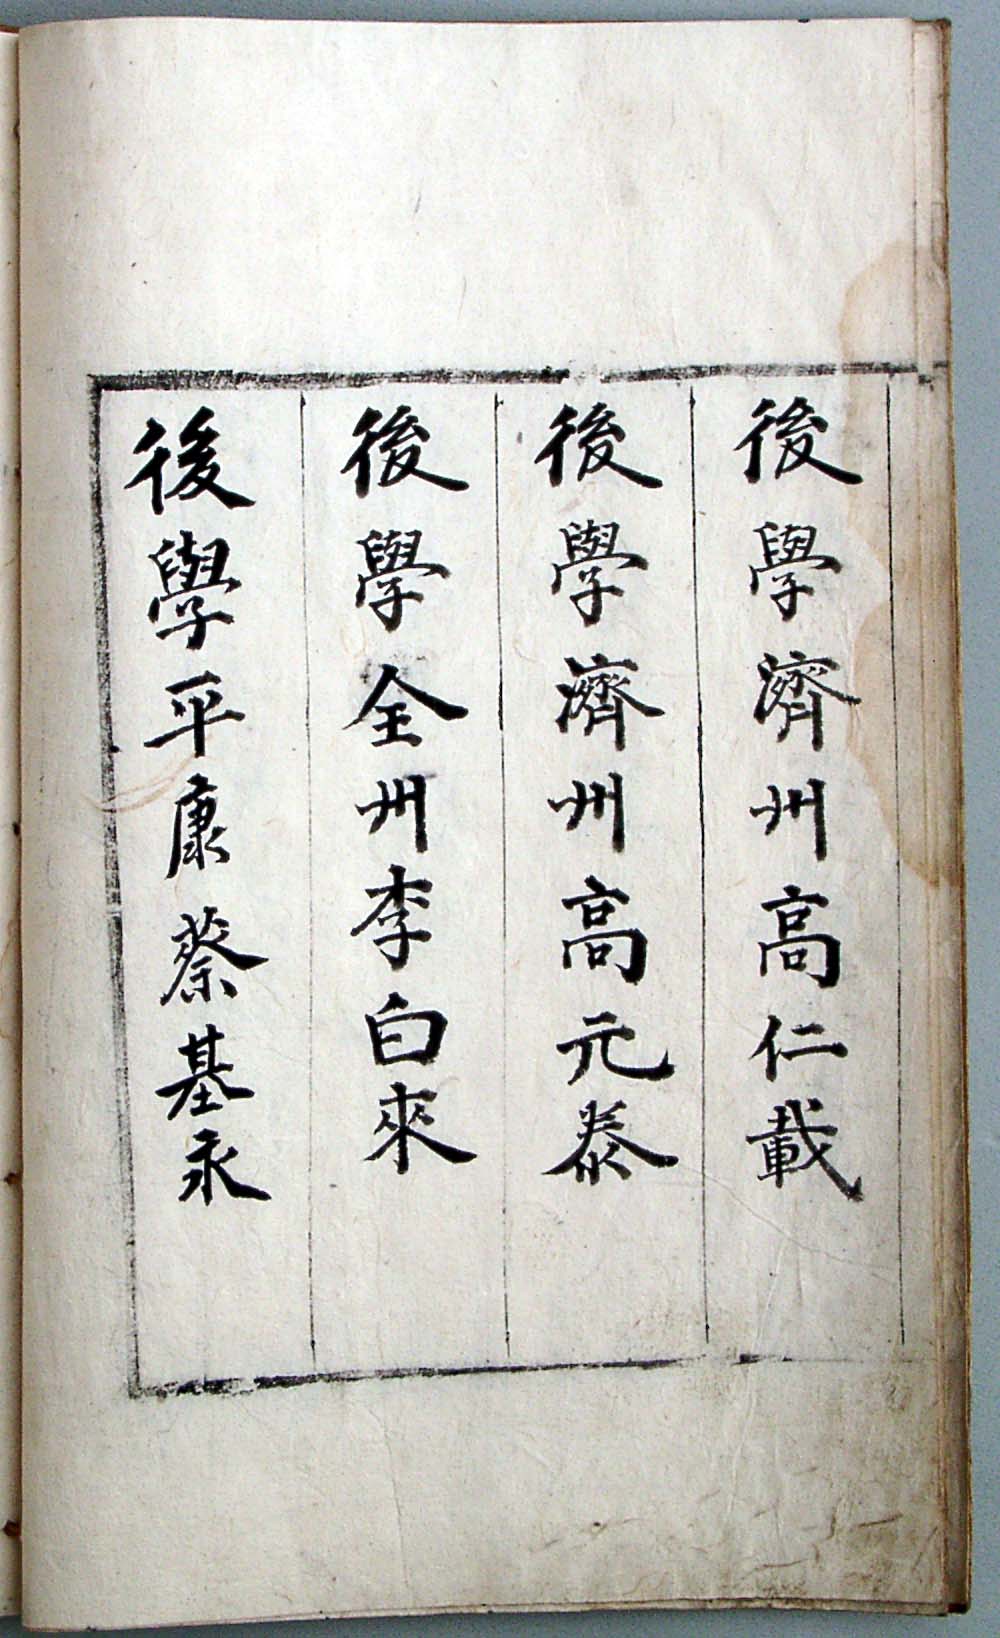 後學濟州高仁載
後學濟州高元泰
後學全州李白來
後學平康蔡基永